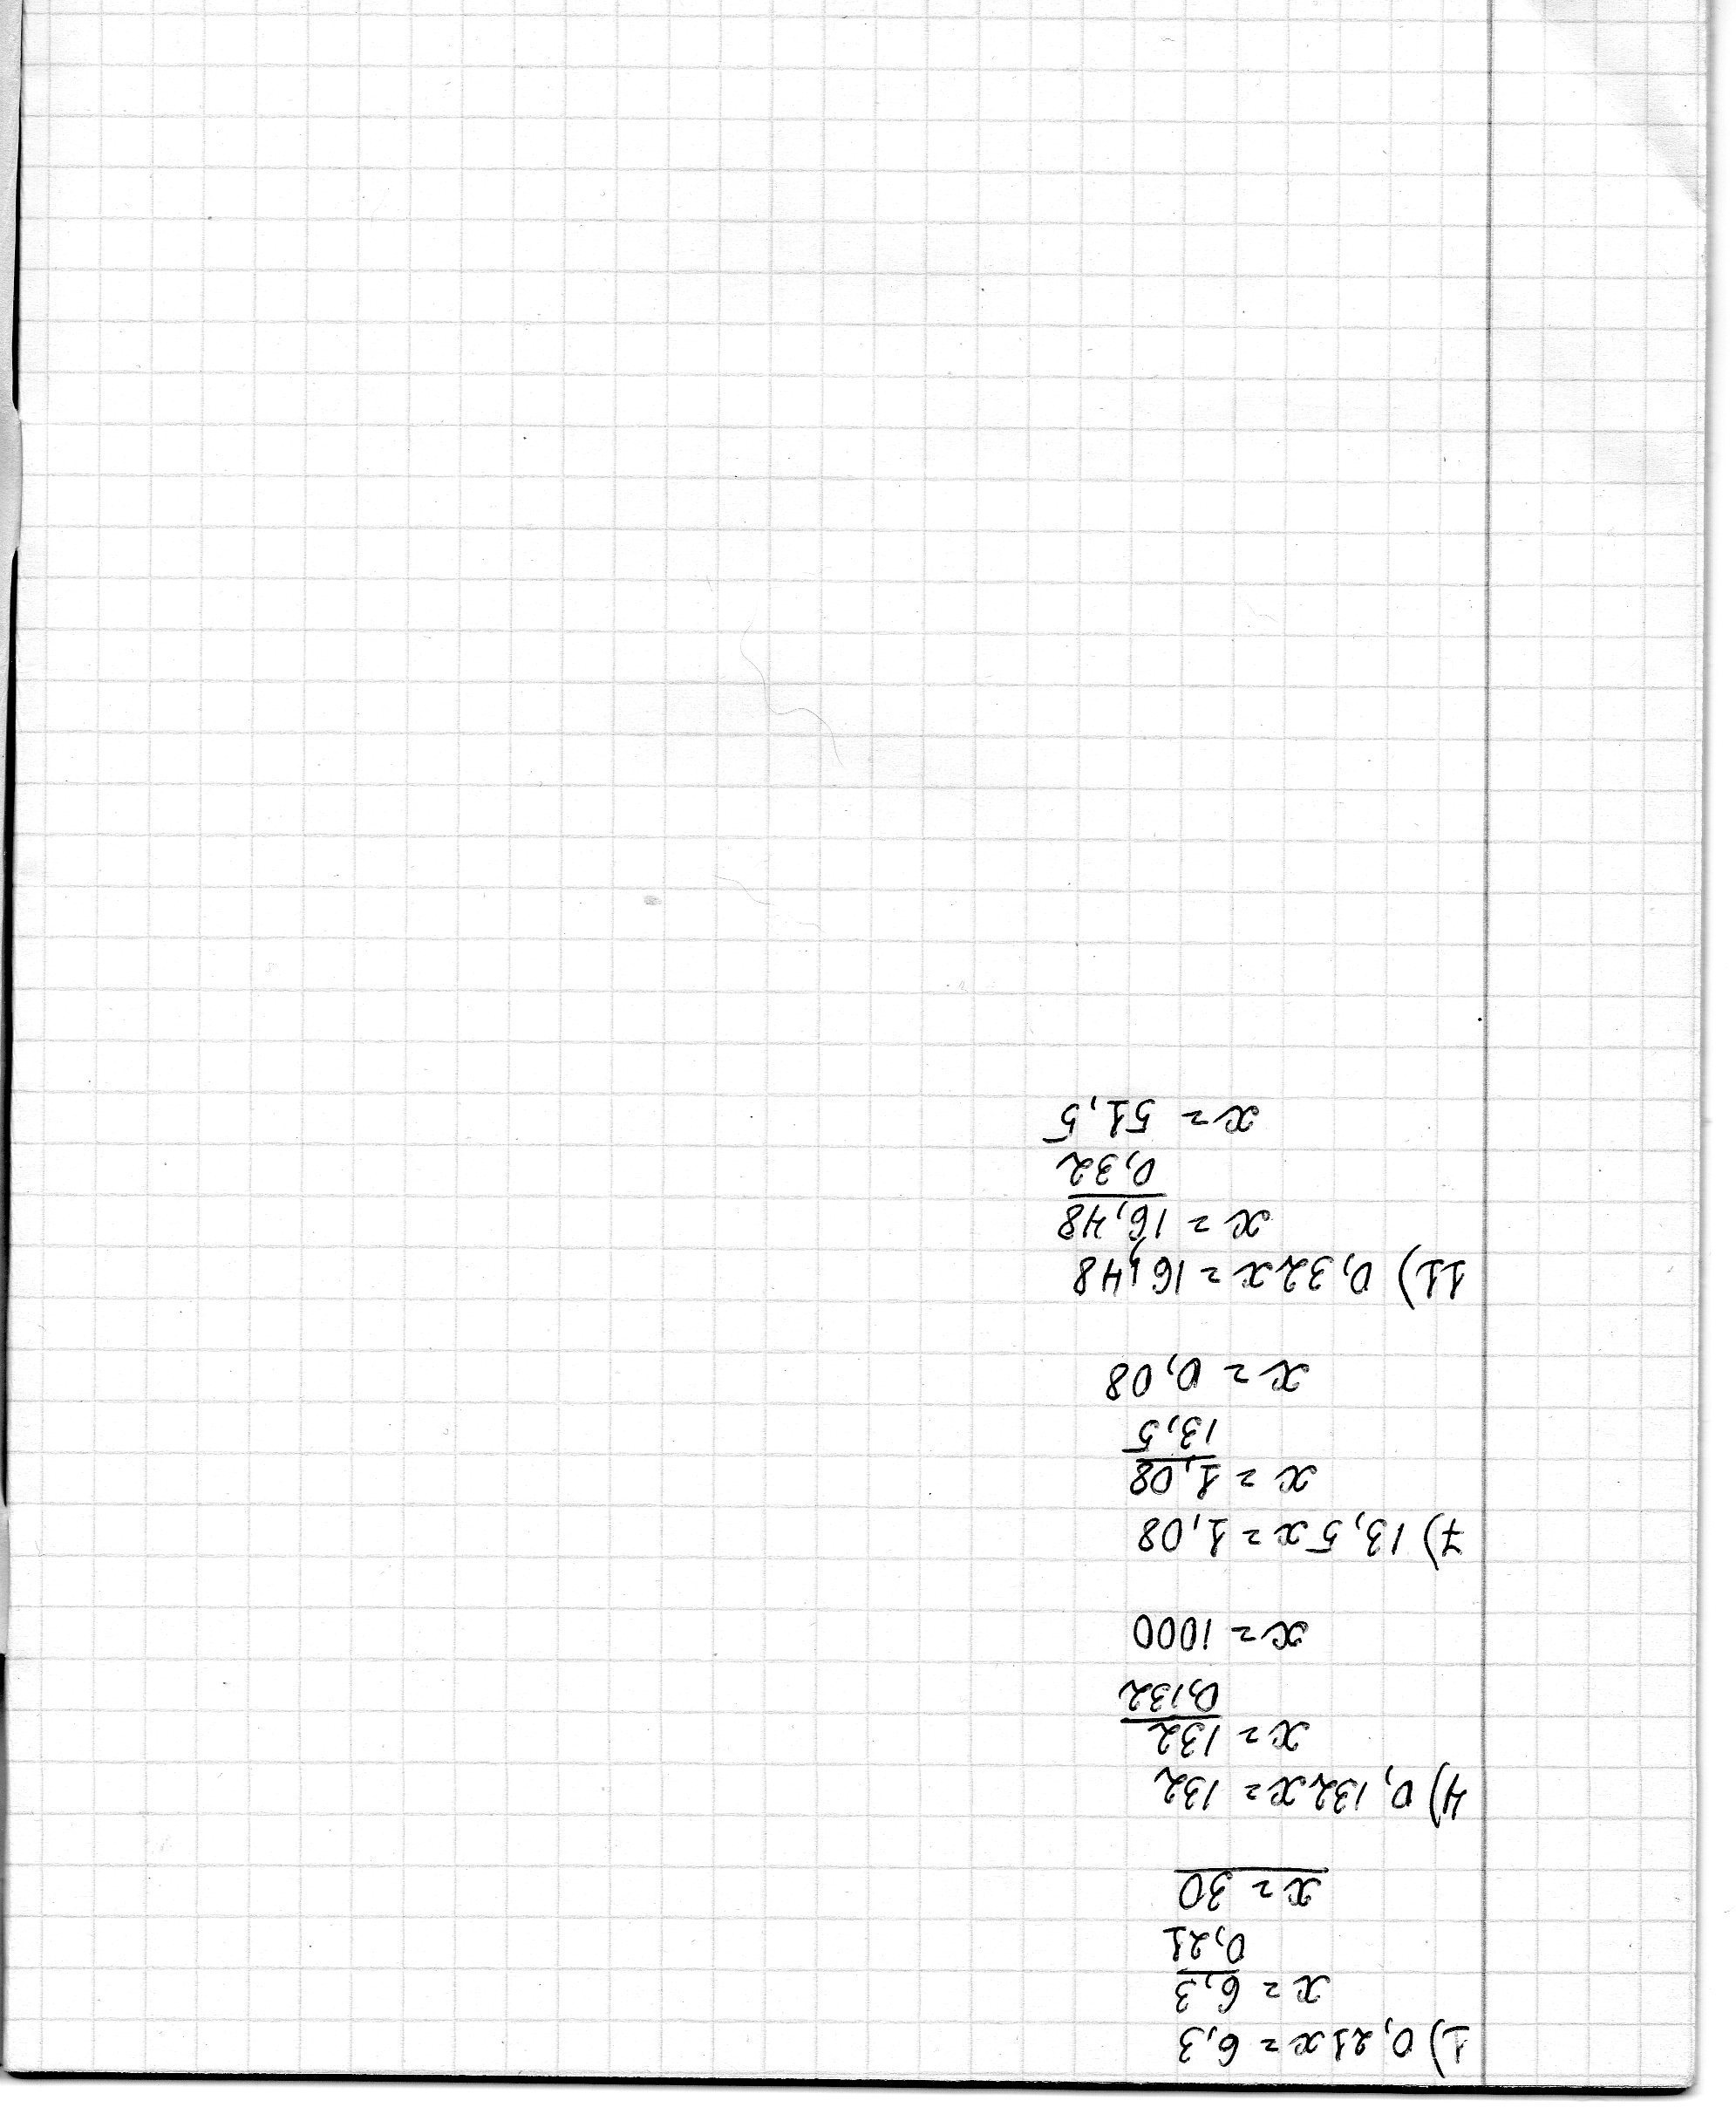 1) 0,21x = 6,3
x = 6,3
0,21
x = 30
4) 0,132x = 132
x = 132
0,132
x = 1000
7) 13,5x = 1,08
x = 1,08
13,5
x = 0,08
11) 0,32x = 16,48
x = 16,48
0,32
x = 51,5